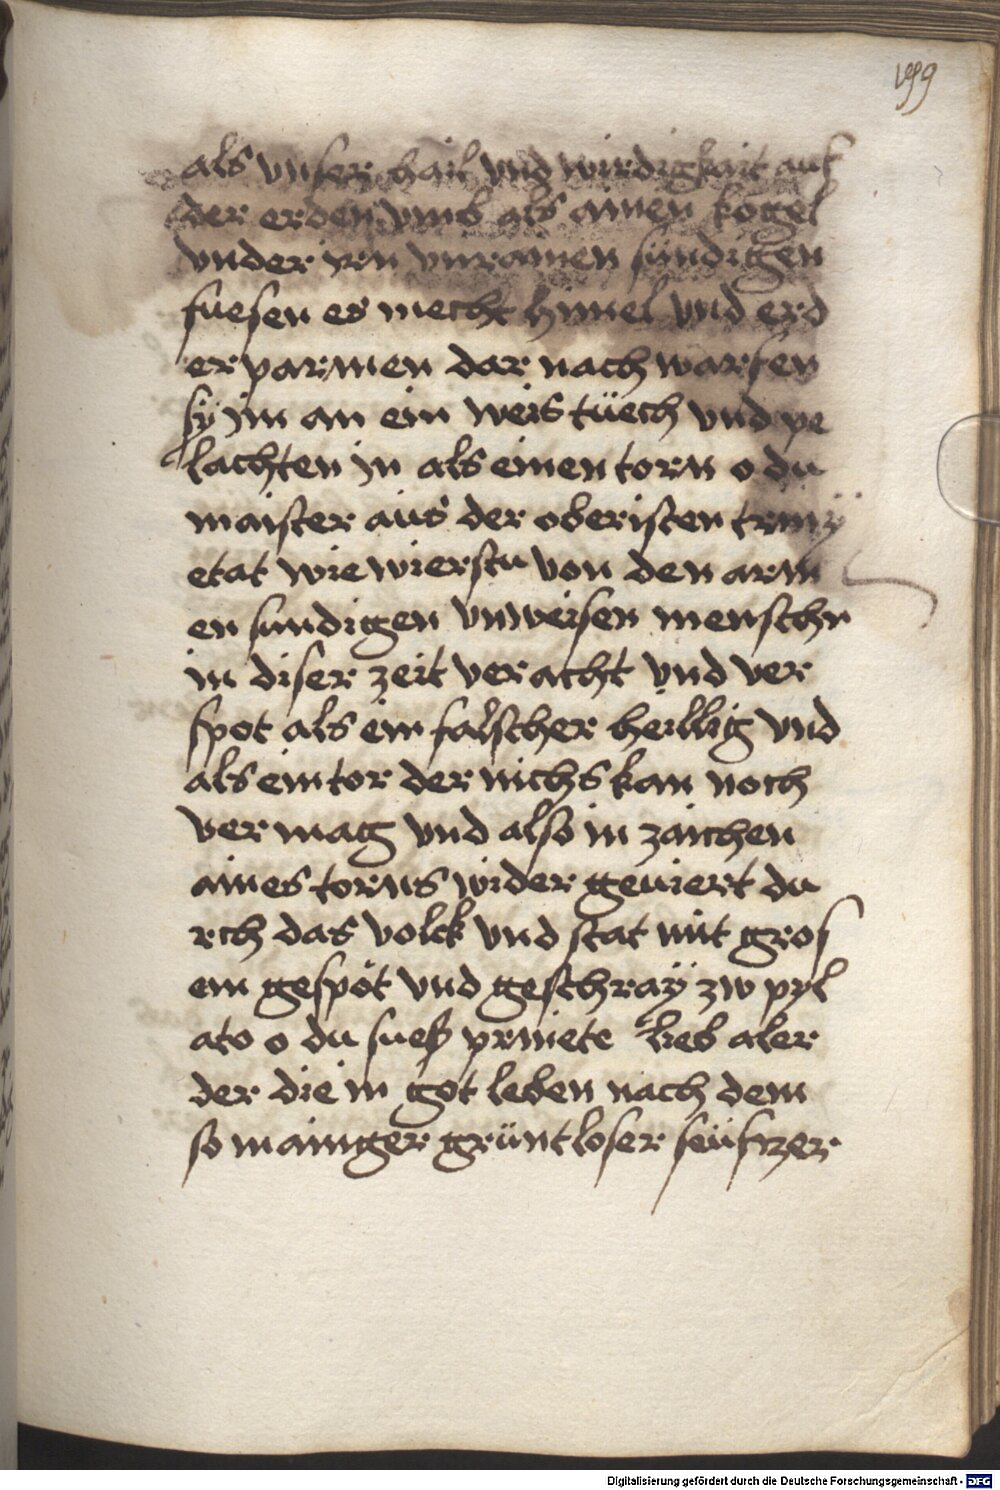 199
als vnser hail vnd wirdigkait auf
der erden vmb als ainen kogel
vnder irn vnrainen sündigen
fuesen es mecht himel vnd erd
erparmen dar nach warfen
sy im an ein weis tüech vnd ve
lachten in als einen torn o du
maister aus der oberisten triny
etat wie wierstu von den arm
en sundigen vnweisen menschn
in diser zeit veracht vnd ver
spot als ein falscher heillig vnd
als ein tor der nichs kan noch
vermag vnd also in zaichen
aines torns wider geuiert du
rch das volck vnd stat mit gros
em gespöt vnd geschray zw pyl
ato o du sueß lieb aler
der die in got leben nach dem
so mainger grüntloser seüfzer
Digitalisierung gefördert durch die Deutsche Forschungsgemeinschaft - DFG